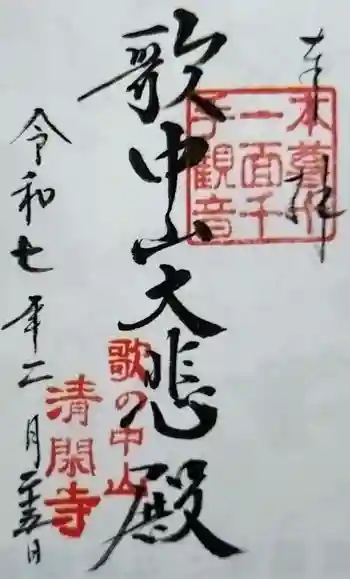 奉拝
本尊十
一面千
手観音
歌中山大悲殿
歌の中山
清閑寺
令和七年二月二十五日